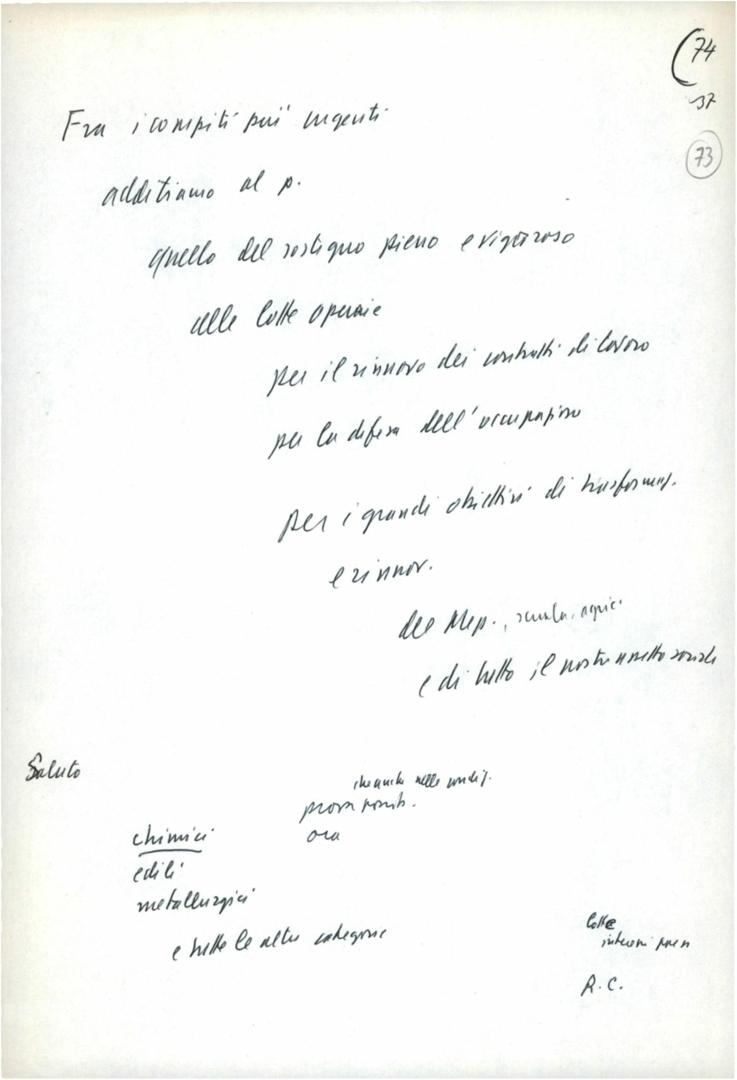 (74
37
73
Fra i compiti più urgenti
additiamo al p.
quello del sostegno pieno e vigoroso
alle lotte operaie
per il rinnovo dei contratti di lavoro
per la difesa dell'occupazione
per i grandi obiettivi di trasformaz.
e rinnov.
del Mezz., scuola, agric.
e di tutto il nostro assetto sociale
Saluto
che anche nelle condiz.
prova
ora
chimici
edili
metallurgici
e tutte le altre categorie
lotte
R.C.